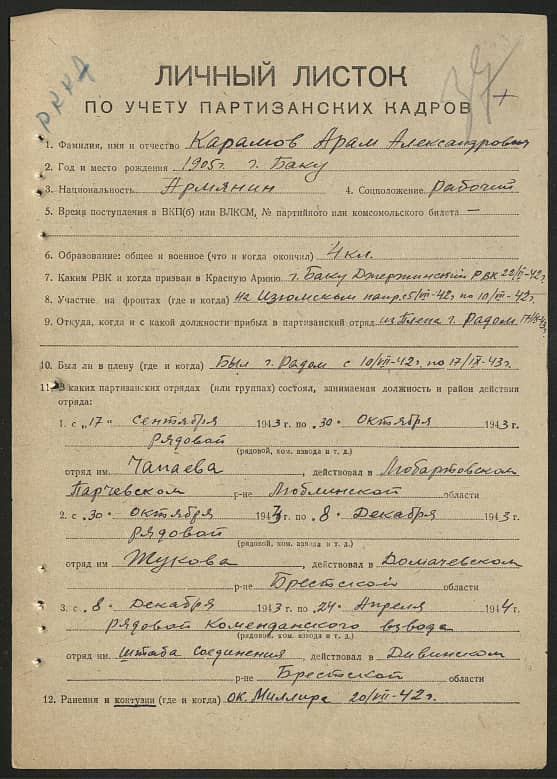 РККА
ЛИЧНЫЙ ЛИСТОК
ПО УЧЕТУ ПАРТИЗАНСКИХ КАДРОВ
1. Фамилия, имя и отчество Карамов Арам Александрович
2. Год и место рождения 1905г. г. Баку
3. Национальность Армянин 4. Соцположение Рабочий
5. Время поступления в ВКП(б) или ВЛКСМ, № партийного или комсомольского билета —
6. Образование: общее и военное (что и когда окончил) 4 кл.
7. Каким РВК и когда призван в Красную Армию г. Баку Джержинский РВК 22/II-42г
8. Участие на фронтах (где и когда) на Изюмском напр. с 5/VII-42г по 10/VII-42г.
9. Откуда, когда и с какой должности прибыл в партизанский отряд из плена г. Радом
10. Был ли в плену (где и когда) Был г. Радом с 10/VII-42г. по 17/IX-43г.
11. В каких партизанских отрядах (или группах) состоял, занимаемая должность и район действия
отряда:
1. с „17" сентября 1943 г. по „30" Октября 1943 г.
рядовой
(рядовой, ком. взвода и т. д.)
отряд им. Чапаева, действовал в Любартовском
Парчевском р-не Люблинской области
2. с „30" октября 1943 г. по „8" Декабря 1943 г.
рядовой
(рядовой, ком. взвода и т. д.)
отряд им Жукова, действовал в Домачевском
р-не Брестской области
3. с „8" Декабря 1943 г. по „24" Апреля 1944 г.
рядовой Коменданского взвода
(рядовой, ком. взвода и т. д.)
отряд им. штаба Соединения, действовал в Дивинском
р-не Брестской области
12. Ранения и контузии (где и когда) ок. Миллира 20/VII-42г.